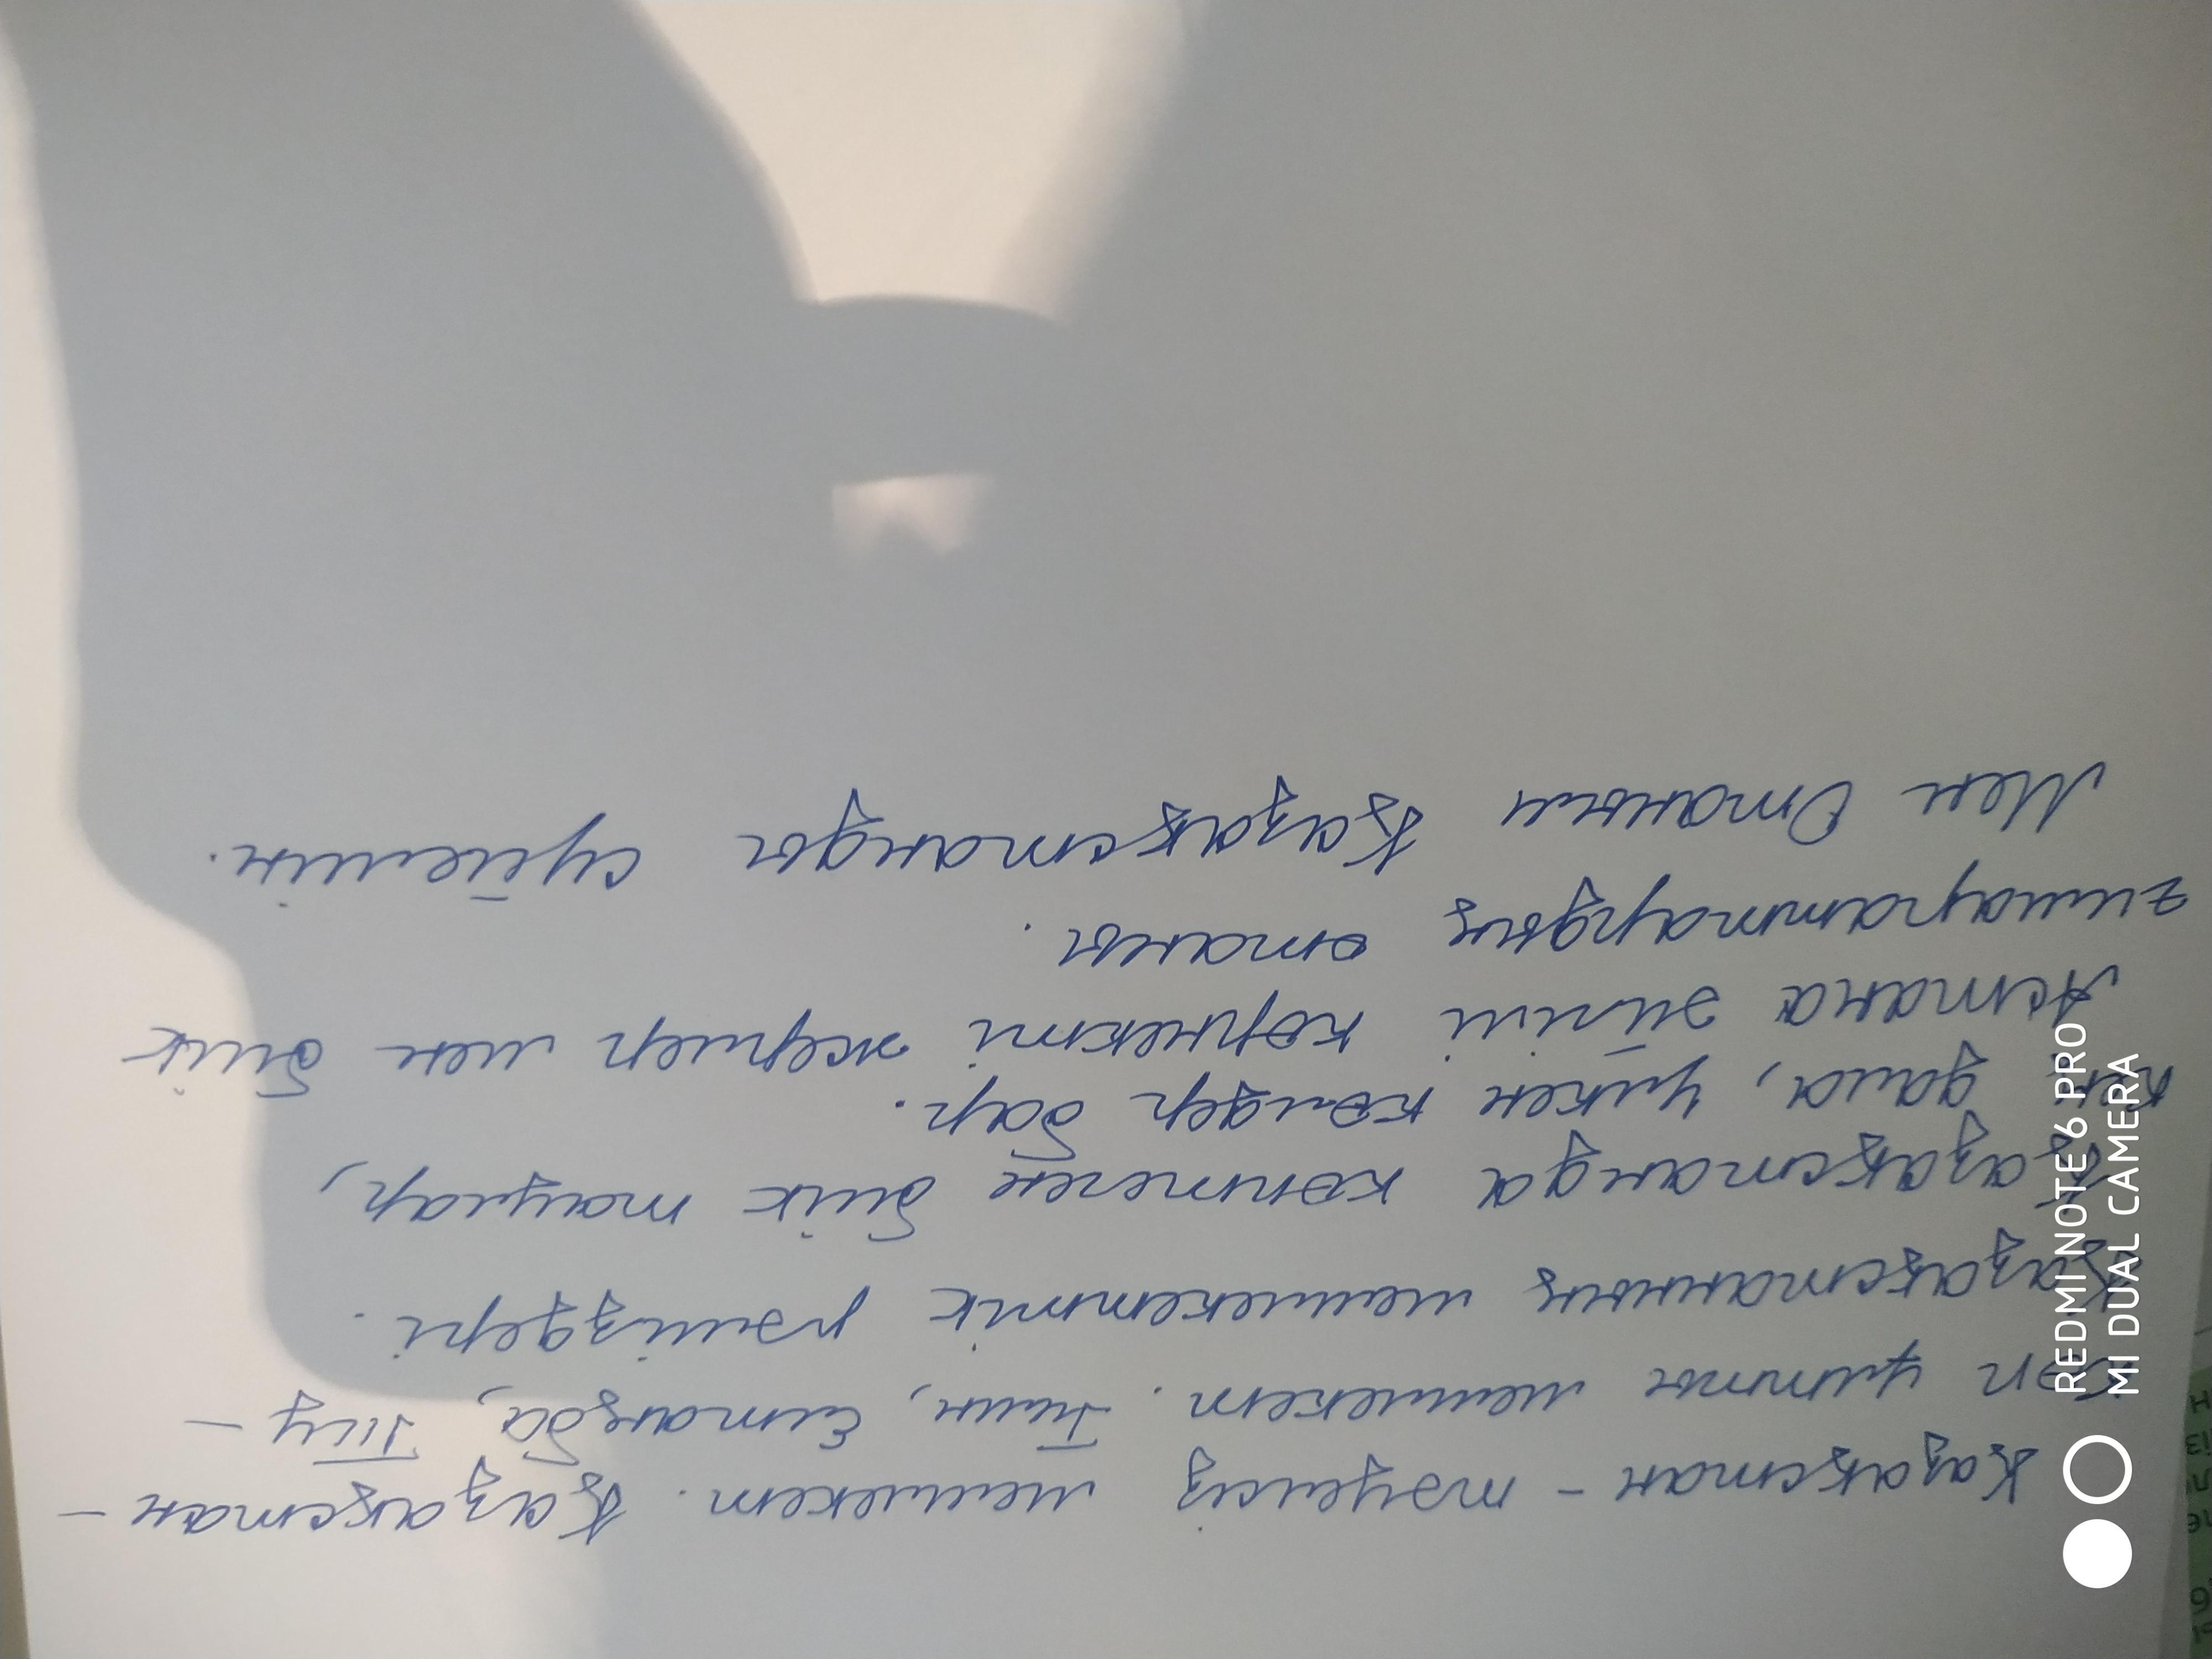 Қазақстан - тәуелсіз мемлекет. Қазақстан -
көп ұлтты мемлекет. Тілін, Елтаңба, Ту -
Қазақстанның мемлекеттік рәміздері.
Қазақстанда көптеген биік таулар,
кең дала, үлкен көлдер бар.
Астана әйгілі көрнекті жерлер мен биік
ғимараттардың отаны.
Мен Отаным Қазақстанды сүйемін.
REDMI NOTE 6 PRO
MI DUAL CAMERA